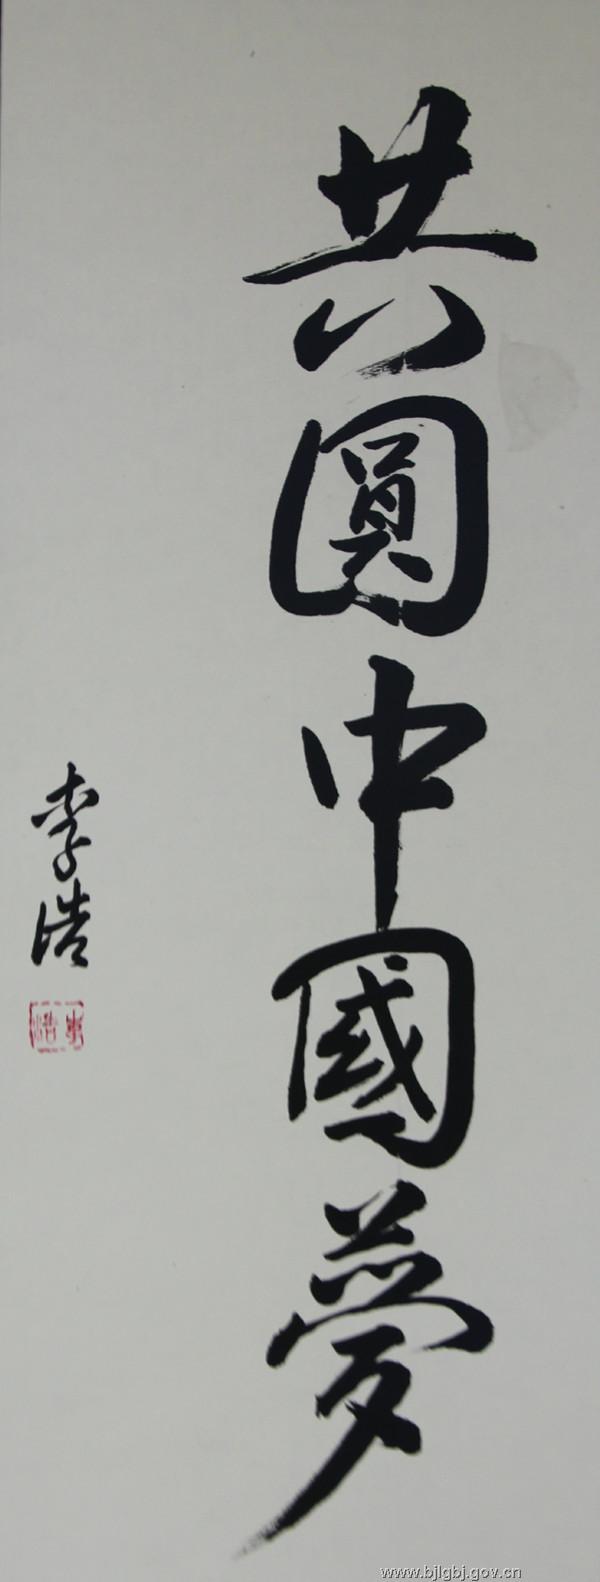 共圓中國夢
李浩
李浩
www.bjlgbj.gov.cn